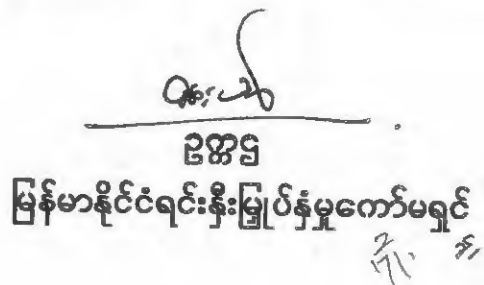 ဥက္ကဋ္ဌ
မြန်မာနိုင်ငံရင်းနှီးမြှုပ်နှံမှုကော်မရှင်